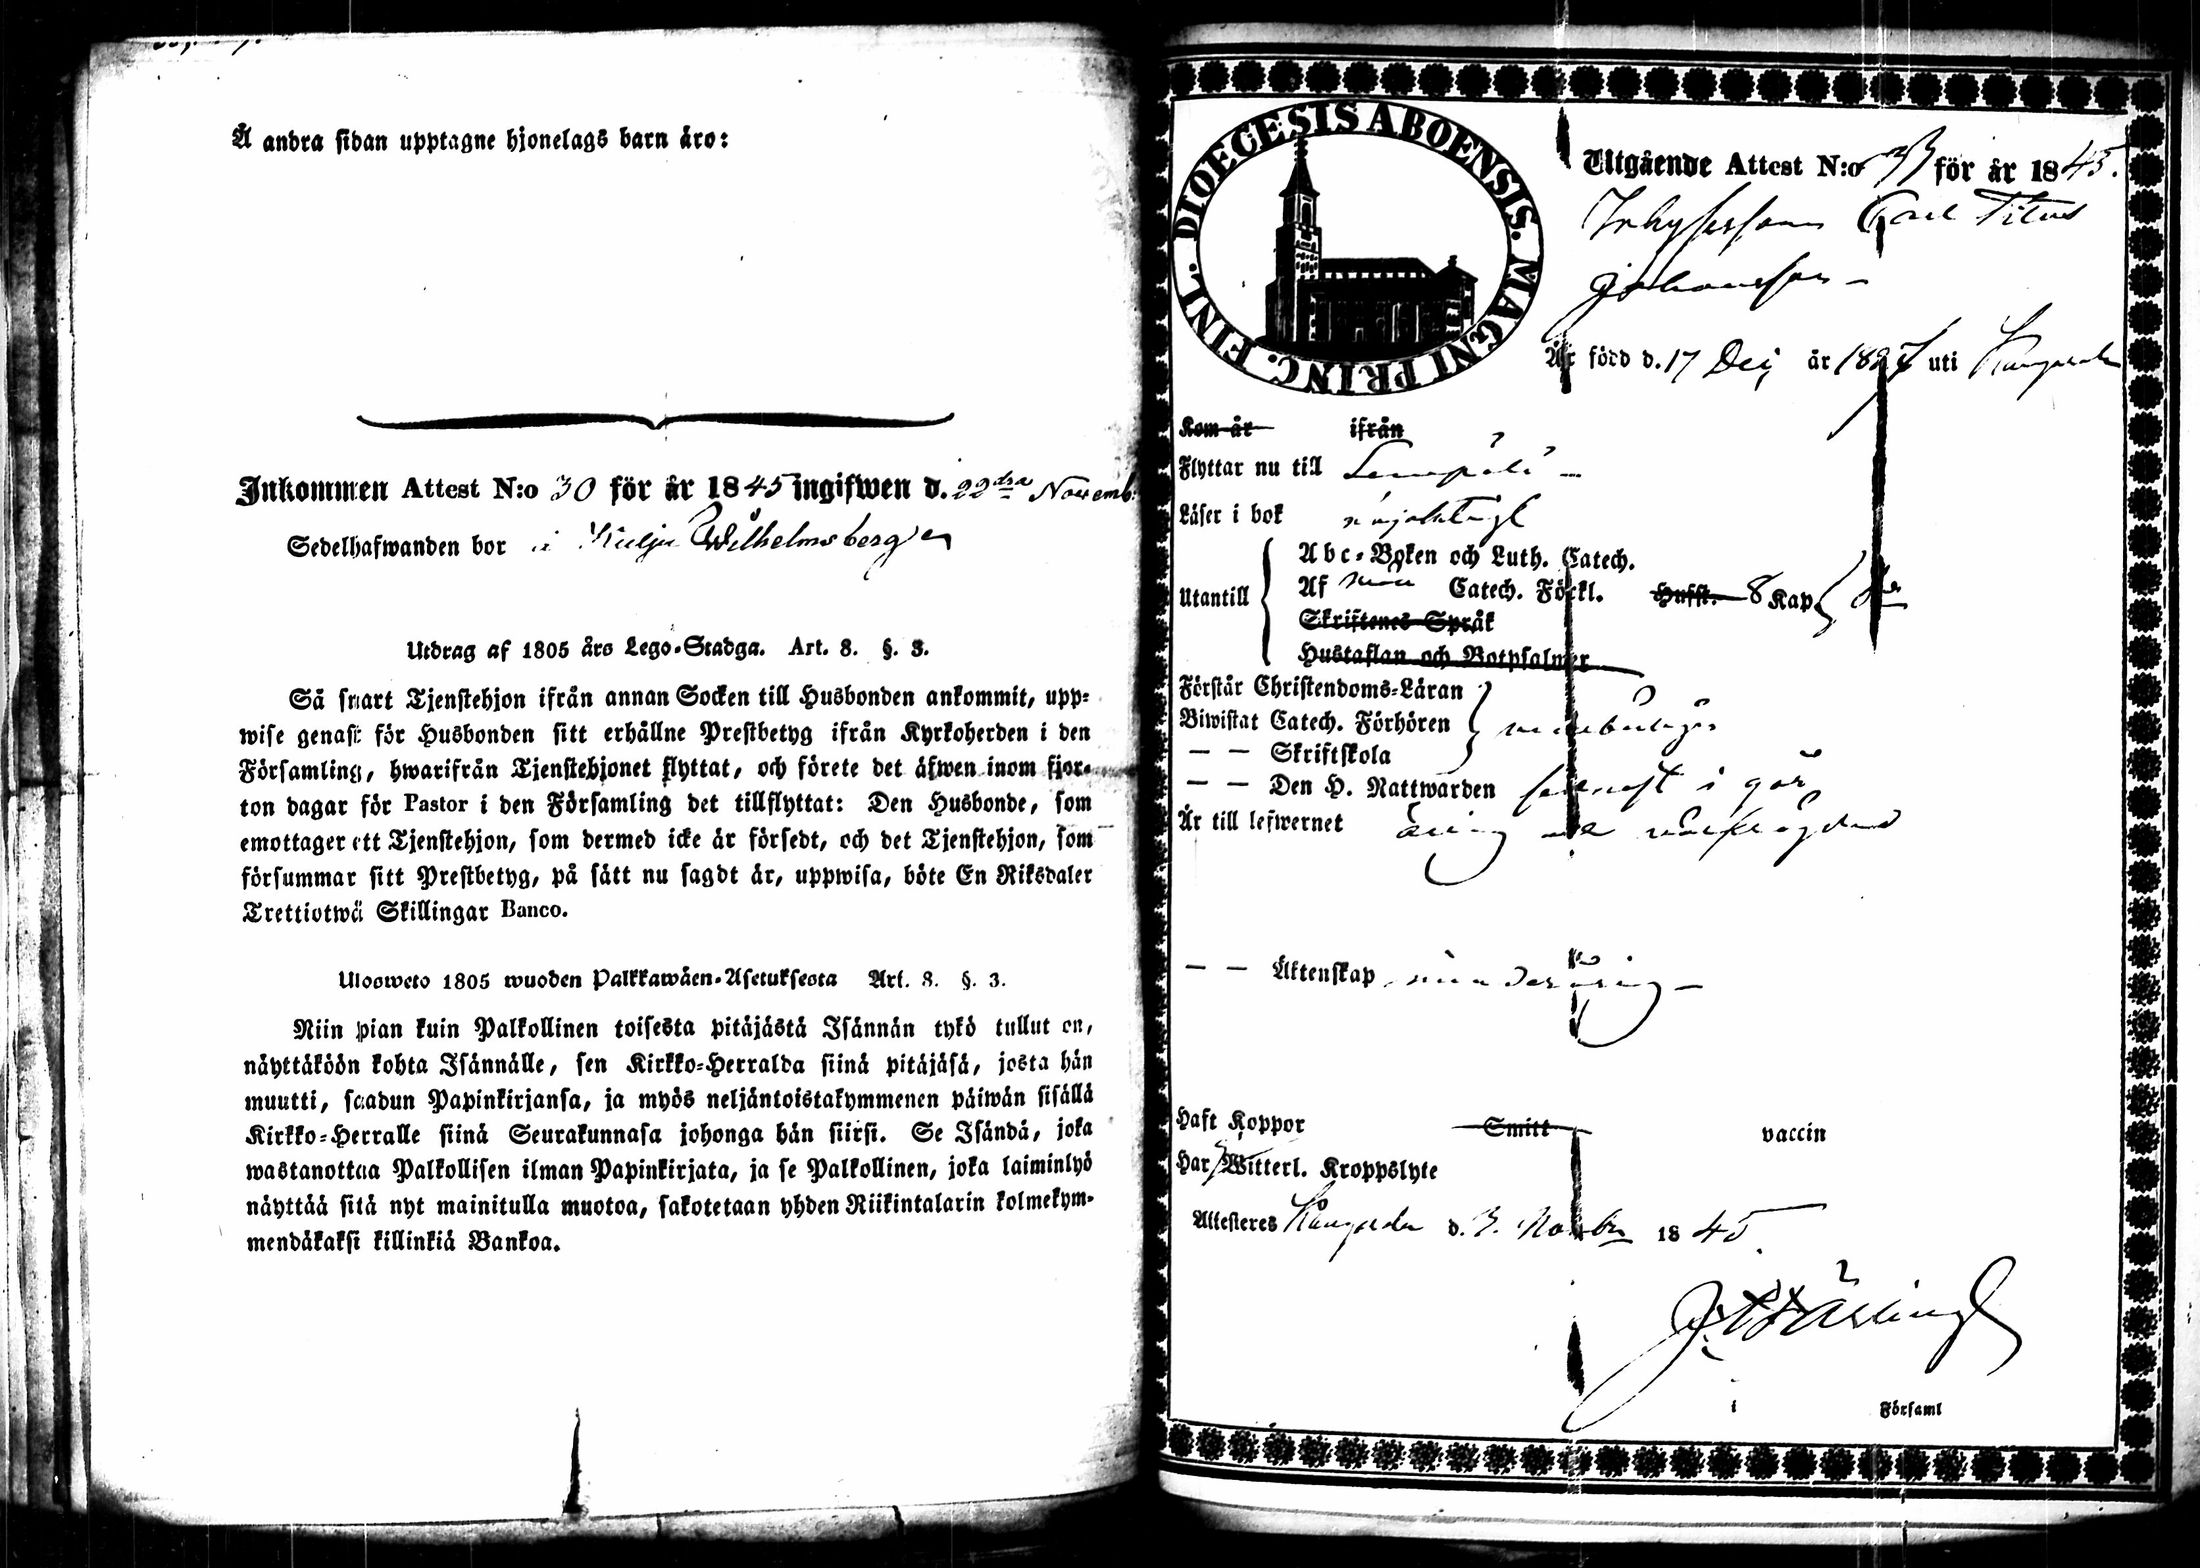 Å andra sidan upptagne hjonelags barn äro:
Inkommen Attest N:o 30 för år 1845 ingifwen d. 22dra Novemb:
Sedelhafwanden bor i Kulju Wilhelmsberg
Utdrag af 1805 års Lego-Stadga. Art. 8. §. 3.
Så snart Tjenstehjon ifrån annan Socken till Husbonden ankommit, upp-
wise genast för Husbonden sitt erhållne Prestbetyg ifrån Kyrkoherden i den
Församling, hwarifrån Tjenstehjonet flyttat, och förete det äfwen inom fjor-
ton dagar för Pastor i den Församling det tillflyttat: Den Husbonde, som
emottager ett Tjenstehjon, som dermed icke är försedt, och det Tjenstehjon, som
försummar sitt Prestbetyg, på sätt nu sagdt är, uppwisa, böte En Riksdaler
Trettiotwå Skillingar Banco.
Ulosweto 1805 wuoden Palkkawäen-Asetuksesta Art. 8. §. 3.
Niin pian kuin Palkollinen toisesta pitäjästä Isännän tykö tullut on,
näyttäköön kohta Isännälle, sen Kirkko-Herralda siinä pitäjäsä, josta hän
muutti, saadun Papinkirjansa, ja myös neljäntoistakymmenen päiwän sisällä
Kirkko-Herralle siinä Seurakunnasa johonga hän siirsi. Se Isändä, joka
wastanottaa Palkollisen ilman Papinkirjata, ja se Palkollinen, joka laiminlyö
näyttää sitä nyt mainitulla muotoa, sakotetaan yhden Riikintalarin kolmekym-
mendäkaksi killinkiä Bankoa.
DIOECESIS ABOENSIS. MAGNI PRINC. FINL.
Utgående Attest N:o för år 1845.
Carl Titus
Johansson
Är född d. 17 Dec år uti Kangasala
Kom år ifrån
Flyttar nu till Lempälä
Läser i bok nöjaktigt
Utantill
Abc-Boken och Luth. Catech.
Af Catech. Förkl. Hufst. 8 Kap.
Skriftenes Språk
Hustaflan och Botpsalmer
Förstår Christendoms-Läran
Biwistat Catech. Förhören
— — Skriftskola
— — Den H. Nattwarden senast i går
Är till lefwernet
— — Äktenskap minderårig
Haft Koppor Smitt vaccin
Har Witterl. Kroppslyte
Attesteres Kangasala d. 3. Novbr 1845.
i Församl